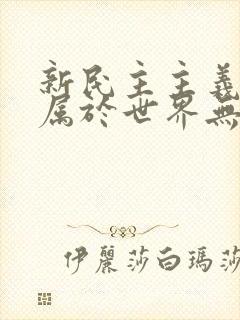 新民主主義
属於世界無
伊麗莎白瑪莎